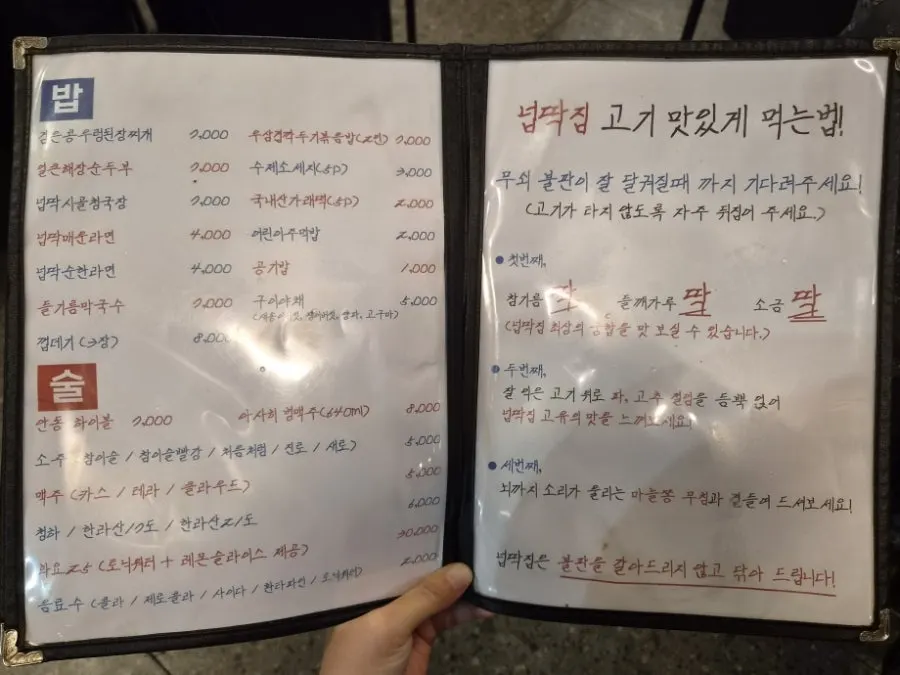 밥
검은콩우렁된장찌개 7,000
얼큰해장순두부 7,000
넙딱시골청국장 7,000
넙딱매운라면 4,000
넙딱순한라면 4,000
들기름막국수 7,000
껍데기(3장) 8,000
우삼겹깍두기볶음밥(2인) 7,000
수제소세지(5p) 3,000
국내산가래떡(5p) 2,000
어린이주먹밥 2,000
공기밥 1,000
구이야채 5,000
술
안동 하이볼 7,000
아사히 병맥주(640ml) 8,000
소주 (참이슬 / 참이슬빨강 / 처음처럼 / 진로 / 새로) 5,000
맥주 (카스 / 테라 / 클라우드) 5,000
청하 / 한라산17도 / 한라산21도 6,000
화요25 (토닉워터 + 레몬슬라이스 제공) 30,000
음료수 (콜라 / 제로콜라 / 사이다 / 환타파인 / 토닉워터) 2,000
넙딱집 고기 맛있게 먹는법!
무쇠 불판이 잘 달궈질때 까지 기다려주세요!
(고기가 타지 않도록 자주 뒤집어 주세요.)
첫번째,
참기름 딱 들깨가루 딸 소금 딸
(넙딱집 최상의 궁합을 맛 보실 수 있습니다.)
두번째,
잘 익은 고기 위로 파, 고추 절임을 듬뿍 얹어
넙딱집 고유의 맛을 느껴보세요!
세번째,
뇌까지 소리가 울리는 마늘쫑 무침과 곁들여 드셔보세요!
넙딱집은 불판을 갈아드리지 않고 닦아 드립니다!